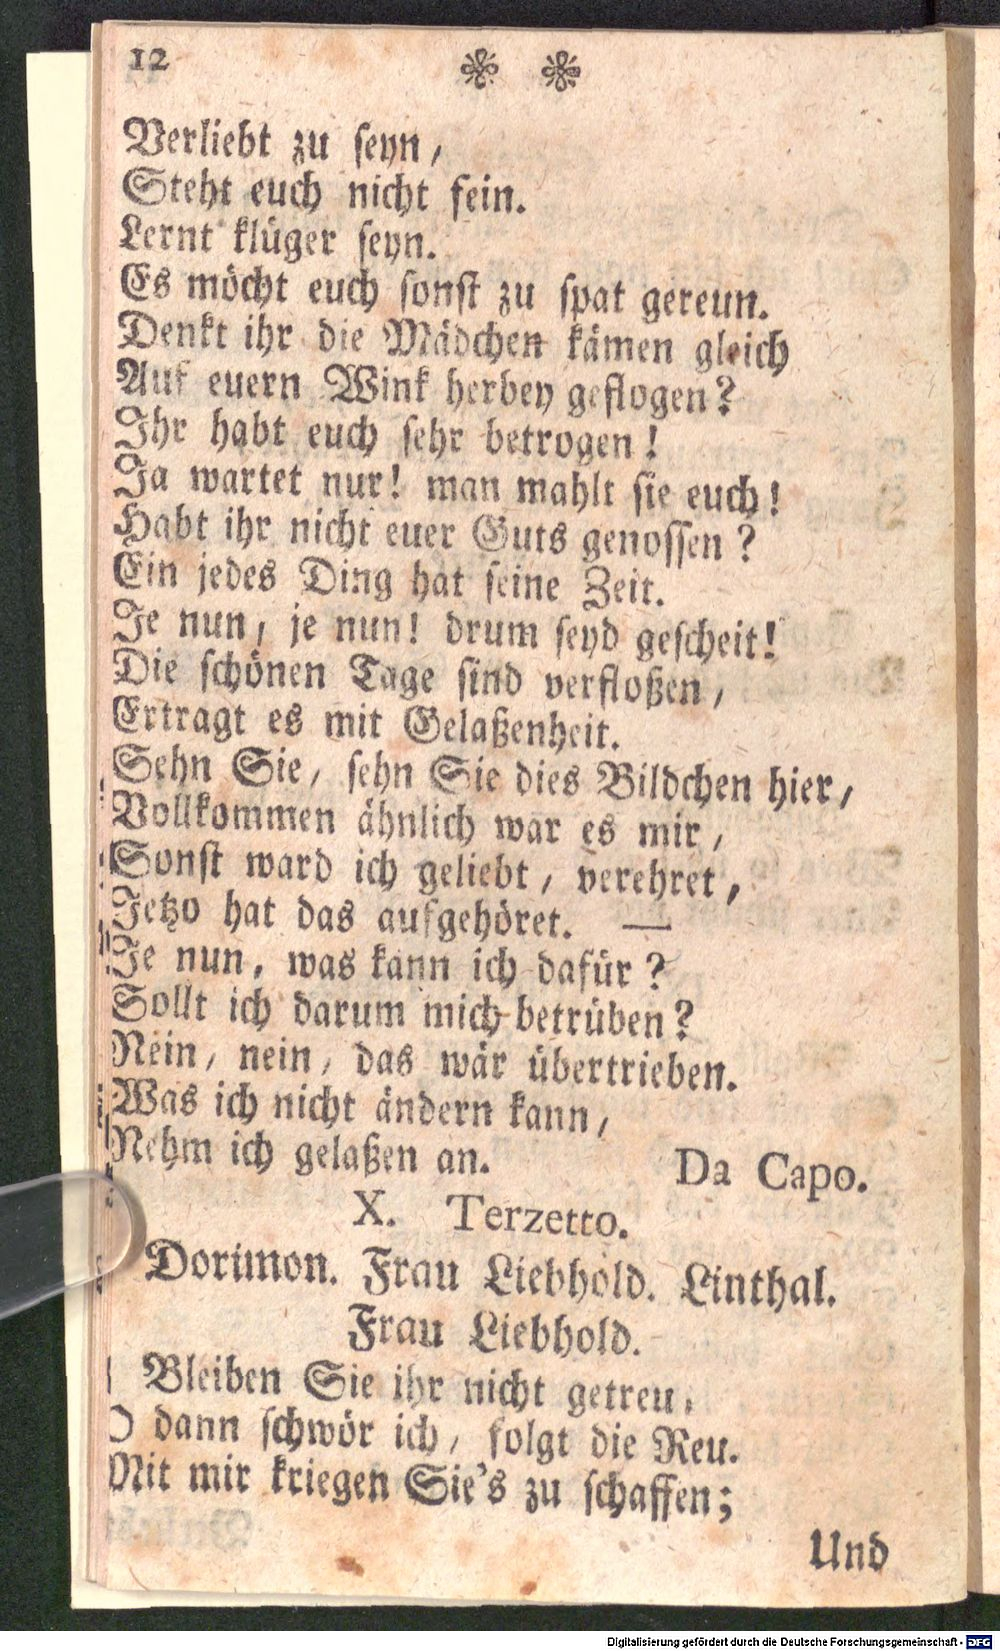 12
Verliebt zu seyn,
Steht euch nicht fein.
Lernt klüger seyn.
Es möcht euch sonst zu spat gereun.
Denkt ihr die Mädchen kämen gleich
Auf euern Wink herbey geflogen?
Ihr habt euch sehr betrogen!
Ja wartet nur! man mahlt sie euch!
Habt ihr nicht euer Guts genossen?
Ein jedes Ding hat seine Zeit.
Je nun, je nun! drum seyd gescheit!
Die schönen Tage sind verfloßen,
Ertragt es mit Gelaßenheit.
Sehn Sie, sehn Sie dies Bildchen hier,
Vollkommen ähnlich war es mir,
Sonst ward ich geliebt, verehret,
Jetzo hat das aufgehöret. —
Je nun, was kann ich dafür?
Sollt ich darum mich betrüben?
Nein, nein, das wär übertrieben.
Was ich nicht ändern kann,
Nehm ich gelaßen an.
Da Capo.
X. Terzetto.
Dorimon. Frau Liebhold. Linthal.
Frau Liebhold.
Bleiben Sie ihr nicht getreu,
O dann schwör ich, folgt die Reu.
Mit mir kriegen Sie's zu schaffen;
Und
Digitalisierung gefördert durch die Deutsche Forschungsgemeinschaft - DFG